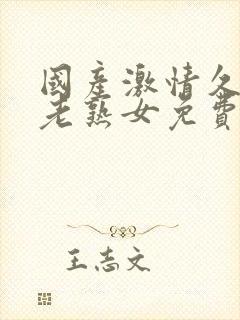 國產激情久
老熟女免費
王志文